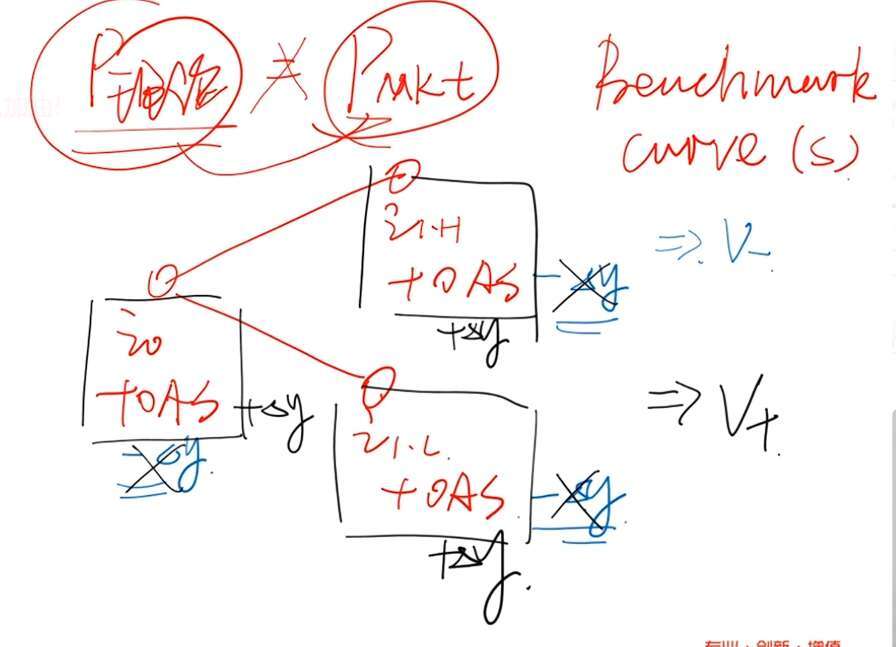 P ≠ Pmkt
Benchmark
curve (s)
i1.H
+OAS -Δy
+Δy
⇒ V-
i0
+OAS +Δy
-Δy
i1.L
+OAS -Δy
+Δy
⇒ V+
专业·创新·增值